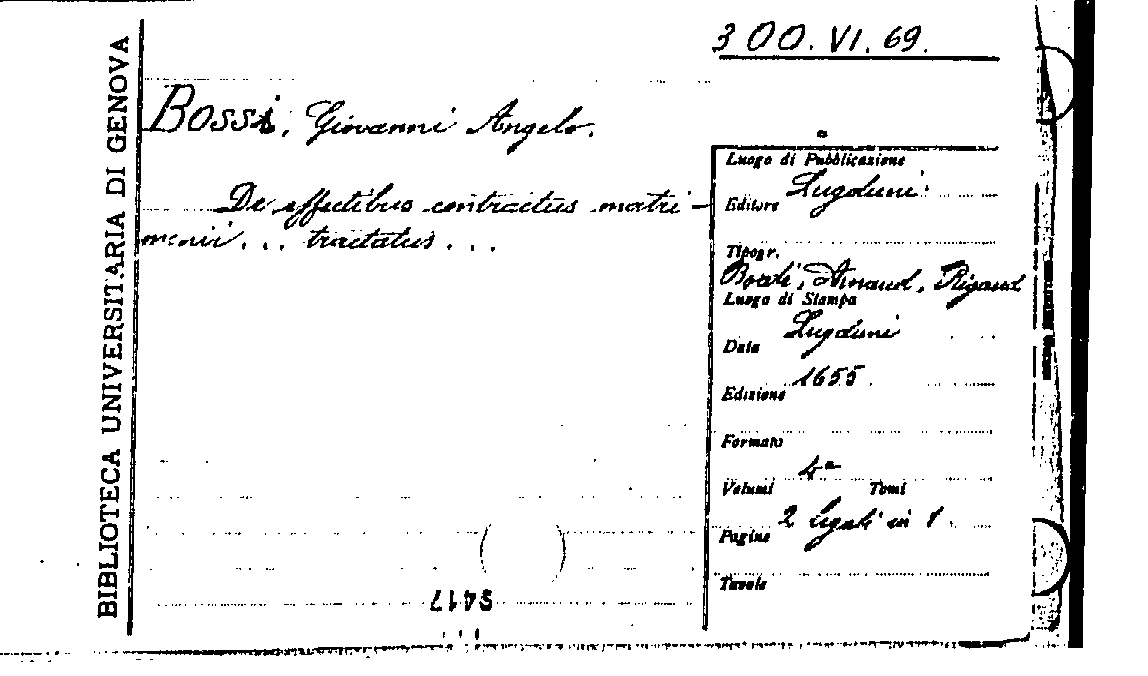 300.VI.69.
BIBLIOTECA UNIVERSITARIA DI GENOVA
Bossi, Giovanni Angelo.
De effectibus contractus matri-
monii... tractatus...
Luogo di Pubblicazione
Lugduni
Editore
Tipogr.
Borde, Arnaud, Rigaud
Luogo di Stampa
Lugduni
Data
1655
Edizione
Formato
4°
Volumi Tomi
2 legati in 1
Pagine
Tavole